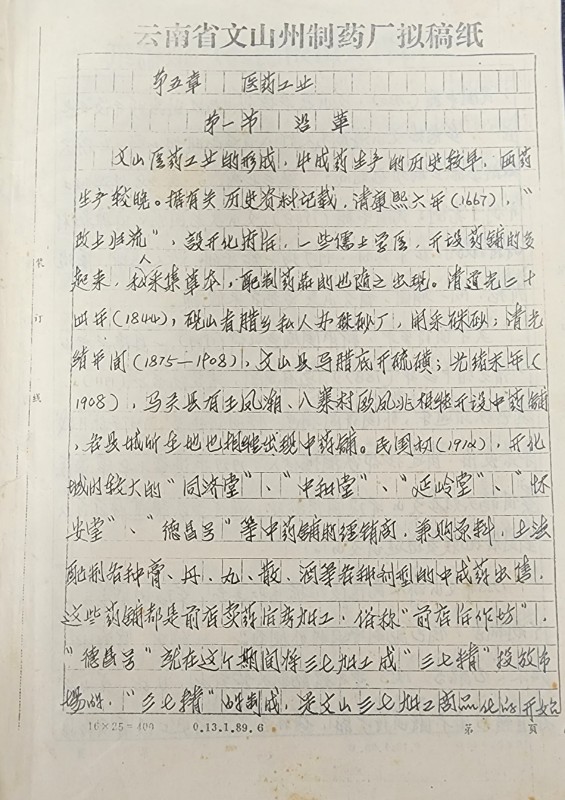 云南省文山州制药厂拟稿纸
第五章 医药工业
第一节 沿革
文山医药工业的形成，中成药生产的历史较早，西药
生产较晚。据有关历史资料记载，清康熙六年（1667），“
改土归流”，设开化府后，一些儒士学医，开设药铺的多
起来，私人采集草本，配制药品的也随之出现。清道光二十
四年（1844），砚山者腊乡私人办硃砂厂，开采硃砂；清光
绪年间（1875—1908），文山县马腊底开硫磺；光绪末年（
1908），马关县有王凤潮、八寨村欧凤兆相继开设中药铺
，各县城所在地也相继出现中药铺。民国初（1912），开化
城内较大的“同济堂”、“中和堂”、“延岭堂”、“怀
安堂”、“德昌号”等中药铺的经销商，兼购原料，土法
配制各种膏、丹、丸、散、酒等各种剂型的中成药出售，
这些药铺都是前店卖药后房加工，俗称“前店后作坊”，
“德昌号”就在这个期间将三七加工成“三七精”投放市
场的，“三七精”的制成，是文山三七加工商品化的开始
装
订
线
16×25=400 0.13.1.89.6 第 页